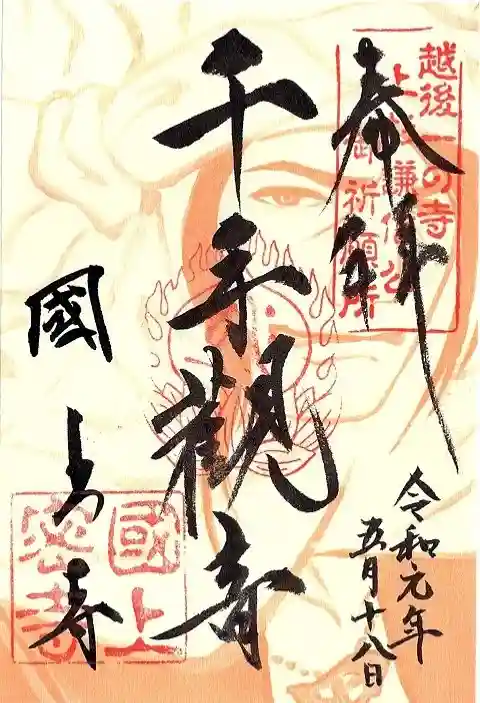 奉拝
越後一の寺
上杉謙信公
御祈願所
千手観音
令和元年
五月十八日
國上寺
國上
密寺